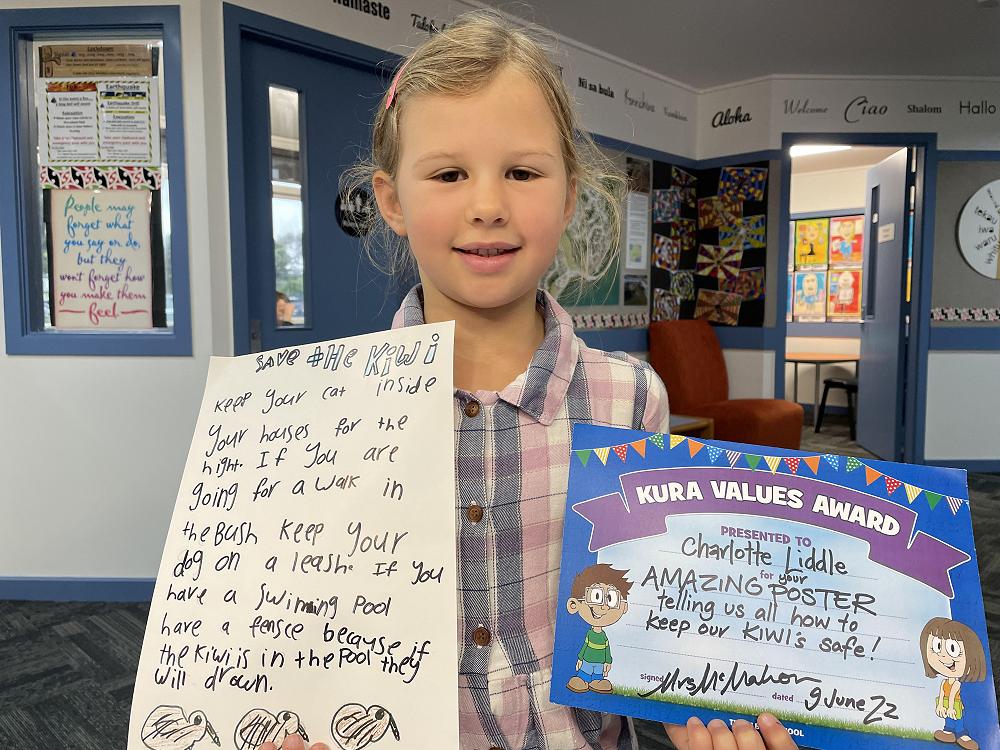 Namaste
Ni sa bula
Aloha
Welcome
Ciao
Shalom
Hallo
Lockdown
Earthquake
Earthquake Drill
Evacuation
Evacuation
People may
forget what
you say or do,
but they
won't forget how
you make them
feel
SAVE the Kiwi
Keep your cat inside
your houses for the
night. If you are
going for a walk in
the Bush Keep your
dog on a leash. If you
have a Swimming Pool
have a fensce because if
the Kiwi is in the Pool they
will drown.
KURA VALUES AWARD
PRESENTED TO
Charlotte Liddle
for your
AMAZING POSTER
telling us all how to
keep our KIWI's safe!
signed Mrs McMahon dated 9 June 22